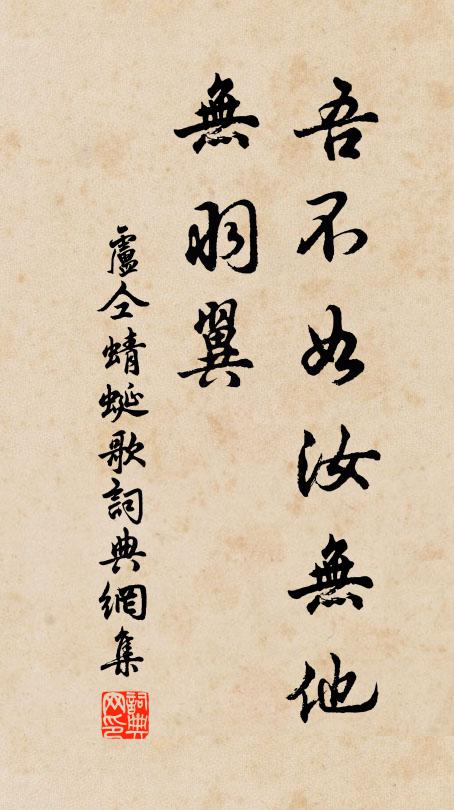 吾不如汝無他
無羽翼
盧仝蜻蜓歌詞典網集
詞典
网印